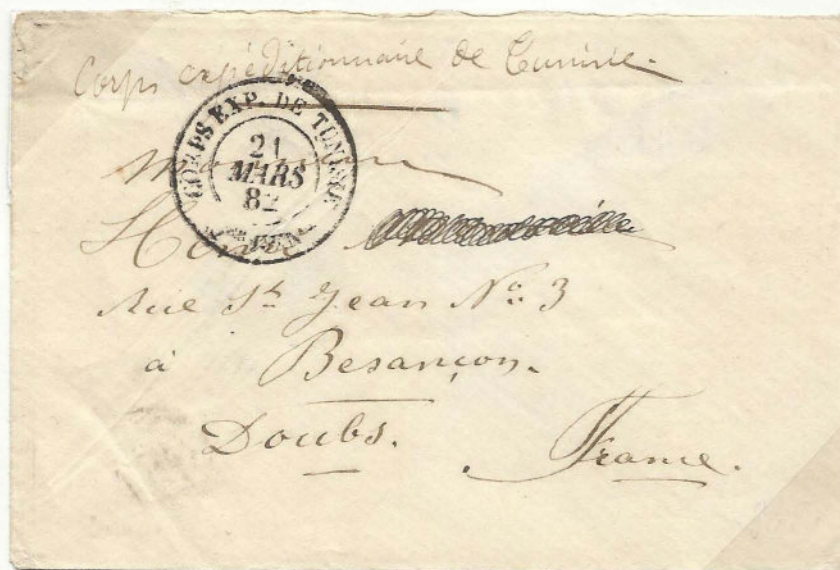 Corps expéditionnaire de Tunisie.
CORPS EXP. DE TUNISIE
21
MARS
82
Monsieur
Rue St Jean No. 3
à Besançon.
Doubs. France.